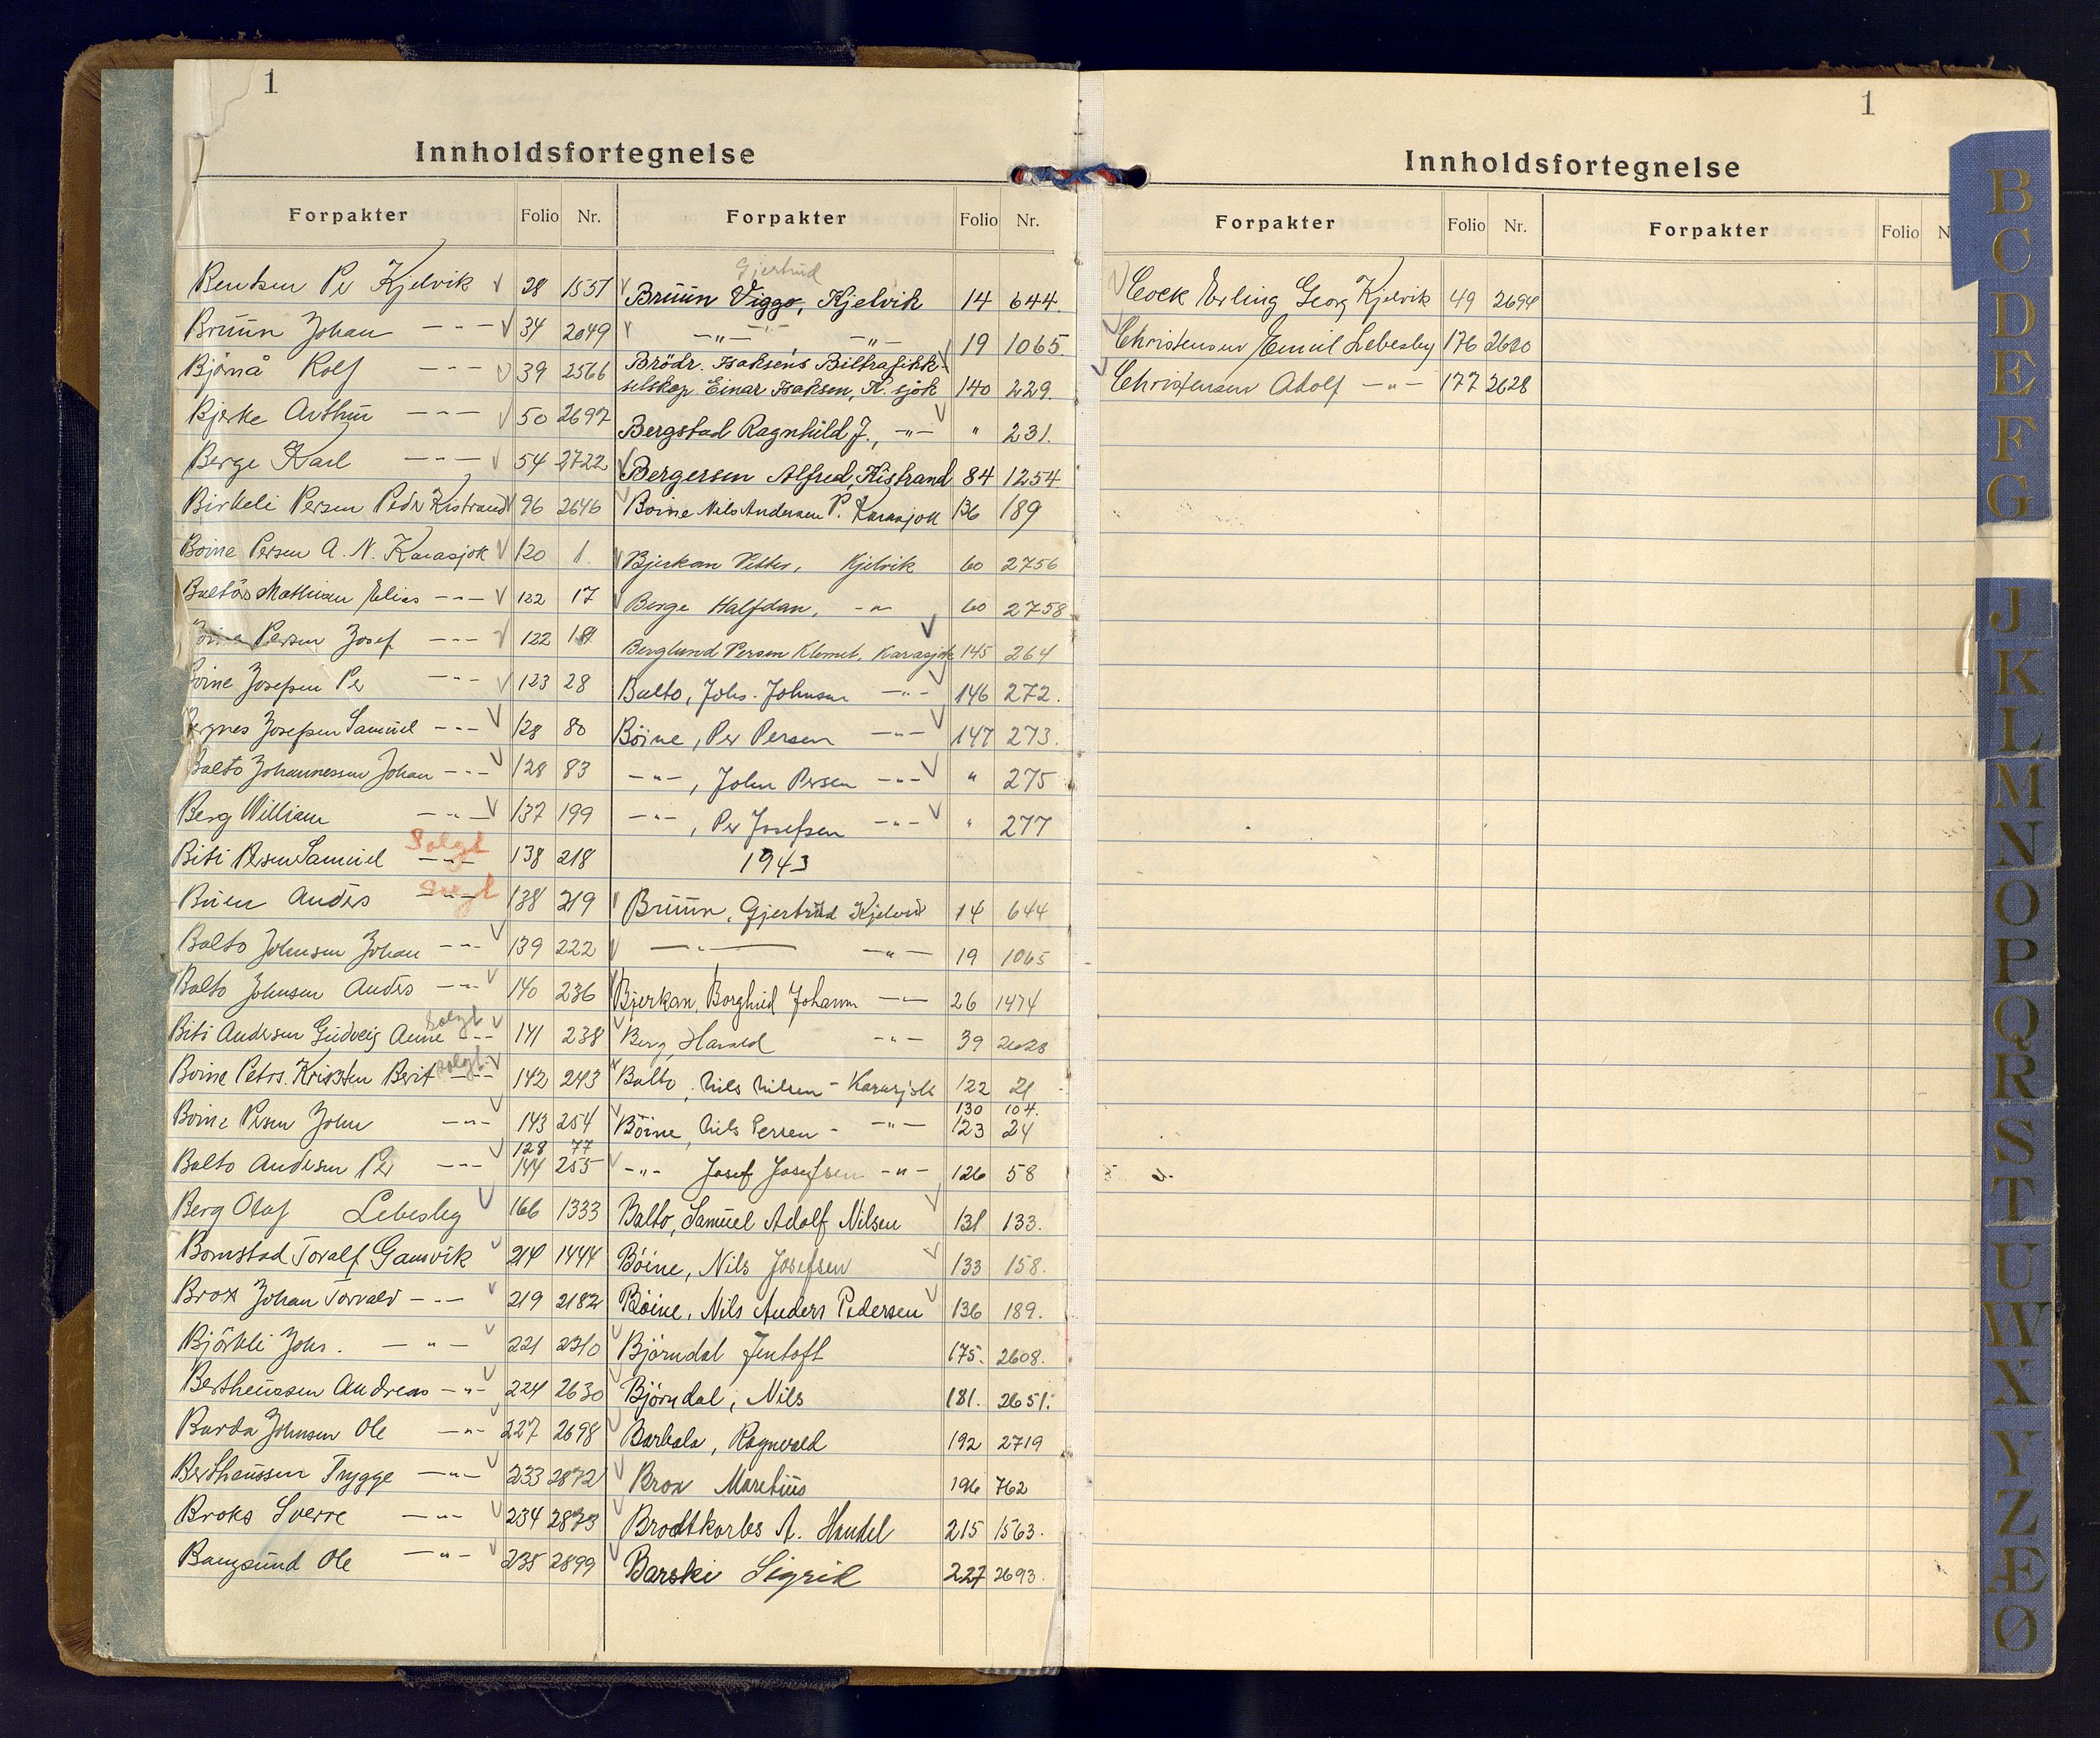 1
Innholdsfortegnelse
Forpakter Folio Nr.
Bentsen Per Kjelvik √ 28 1551
Bruun Johan — " — √ 34 2049
Bjørnå Rolf — " — √ 39 2566
Bjerke Arthur — " — √ 50 2697
Berge Karl — " — √ 54 2722
Birkeli Persen Peder Kistrand √ 96 2646
Boine Persen A. N. Karasjok √ 120 1.
Baltos Mathisen Elias — " — √ 122 17
Boine Persen Josef — " — √ 122 19
Boine Josefsen Per — " — √ 123 28
Josefsen Samuel — " — √ 128 80
Balto Johannessen Johan — " — √ 128 83
Berg William — " — √ 137 199
Biti Persen Samuel — " — Solgt 138 218
Buen Anders — " — 138 219
Balto Johnsen Johan — " — √ 139 222
Balto Johnsen Anders — " — √ 140 236
Biti Andersen Gudveig Anne — " — Solgt √ 141 238
Boine Petrs. Kristen Berit — " — solgt √ 142 243
Boine Persen John — " — √ 143 254
128 77
Balto Andersen Per — " — √ 144 255
Berg Olaf Lebesby √ 166 1333
Bomstad Toralf Gamvik √ 214 1444
Brox Johan Torvald — " — √ 219 2182
Björkli Johs. — " — √ 221 2310
Bertheussen Andreas — " — √ 224 2630
Barda Johnsen Ole — " — √ 227 2698
Berthaussen Trygge — " — √ 233 2872
Broks Sverre — " — √ 234 2873
Bangsund Ole — " — √ 235 2899
Forpakter Folio Nr.
Gjertrud
√ Bruun Viggo, Kjelvik 14 644.
√ — " — — " — 19 1065.
Brödr. Isaksens Biltrafikk- √
selskap Einar Isaksen, K. sjok 140 229.
Bergstad Ragnhild J., — " — √ " 231.
√ Bergersen Alfred, Kistrand 84 1254
√ Boine Nils Andersen P. Karasjok 136 189
√ Bjerkan Petter, Kjelvik 60 2756
√ Berge Halfdan, — " — 60 2758
Berglund Persen Klemet, Karasjok √ 145 264
Balto, Johs. Johnsen — " — √ 146 272.
Böine, Per Persen — " — √ 147 273.
— " —, John Persen — " — √ " 275
— " —, Per Josefsen — " — √ " 277
1943
√ Bruun, Gjertrud Kjelvik 14 644
√ — " — — " — 19 1065
√ Bjerkan, Borghild Johanne — " — 26 1474
√ Berg, Harald — " — 39 2628
√ Balto, Nils Nilsen - Karasjok 122 21
130 104.
√ Böine, Nils Persen - — " — 123 24
√ — " — Josef Josefsen — " — 126 58
Balto, Samuel Adolf Nilsen √ 131 133.
Böine, Nils Josefsen √ 133 158.
Böine, Nils Anders Pedersen √ 136 189.
√ Björndal Jentoft 175. 2608.
√ Björndal, Nils 181. 2651.
√ Barbala, Ragnvald 192 2719
√ Brox Maretius 196 762
√ Brodtkorbs A. Handel 215 1563.
√ Barski Sigrid 227 2693.
1
Innholdsfortegnelse
Forpakter Folio Nr. Forpakter Folio N
√ Cock Erling Georg Kjelvik 49 2694
√ Christensen Emil Lebesby 176 2620
√ Christensen Adolf — " — 177 2628
B
C
D
E
F
G
J
K
L
M
N
O
P
Q
R
S
T
U
W
X
Y
Z
Æ
Ø